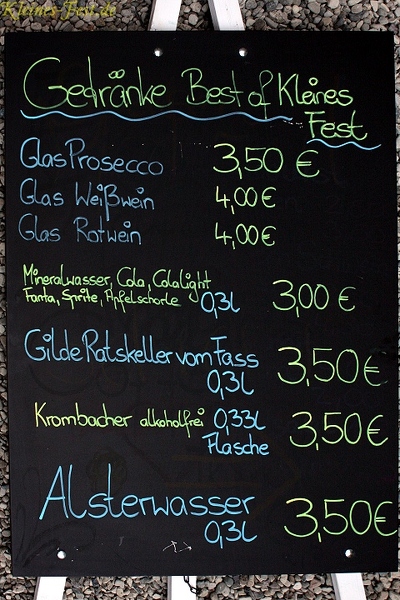 Kleines-Fest.de
Gedränke Best of Kleines
Fest
Glas Prosecco 3,50 €
Glas Weißwein 4,00 €
Glas Rotwein 4,00 €
Mineralwasser, Cola, Cola Light
Fanta, Sprite, Apfelschorle 0,3l 3,00 €
Gilde Ratskeller vom Fass
0,3l 3,50 €
Krombacher alkoholfrei 0,33l 3,50 €
Flasche
Alsterwasser
0,3l 3,50 €